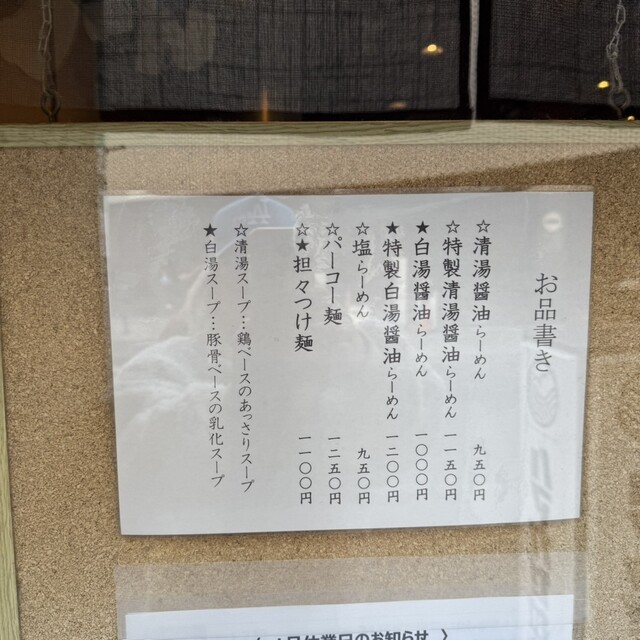 お品書き
☆清湯醤油らーめん 九五〇円
☆特製清湯醤油らーめん 一一五〇円
★白湯醤油らーめん 一〇〇〇円
★特製白湯醤油らーめん 一二〇〇円
☆塩らーめん 九五〇円
☆パーコー麺 一二五〇円
☆★担々つけ麺 一一〇〇円
☆清湯スープ…鶏ベースのあっさりスープ
★白湯スープ…豚骨ベースの乳化スープ
月休業日のお知らせ 〉